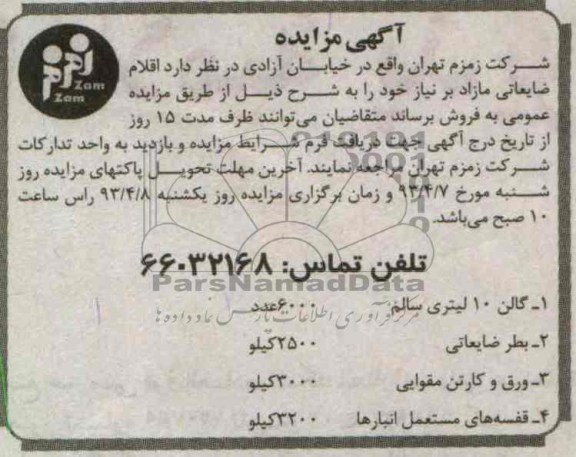 آگهی مزایده
زمزم
Zam
Zam
شرکت زمزم تهران واقع در خیابان آزادی در نظر دارد اقلام
ضایعاتی مازاد بر نیاز خود را به شرح ذیل از طریق مزایده
عمومی به فروش برساند متقاضیان می‌توانند ظرف مدت ۱۵ روز
از تاریخ درج آگهی جهت دریافت فرم شرایط مزایده و بازدید به واحد تدارکات
شرکت زمزم تهران مراجعه نمایند. آخرین مهلت تحویل پاکتهای مزایده روز
شنبه مورخ ۹۳/۴/۷ و زمان برگزاری مزایده روز یکشنبه ۹۳/۴/۸ راس ساعت
۱۰ صبح می‌باشد.
تلفن تماس: ۶۶۰۳۲۱۶۸
ParsNamadData
۱ـ گالن ۱۰ لیتری سالم ۶۰۰۰عدد
مرکز فرآوری اطلاعات پارس نماد داده ها
۲ـ بطر ضایعاتی ۲۵۰۰کیلو
۳ـ ورق و کارتن مقوایی ۳۰۰۰کیلو
۴ـ قفسه‌های مستعمل انبارها ۳۲۰۰کیلو